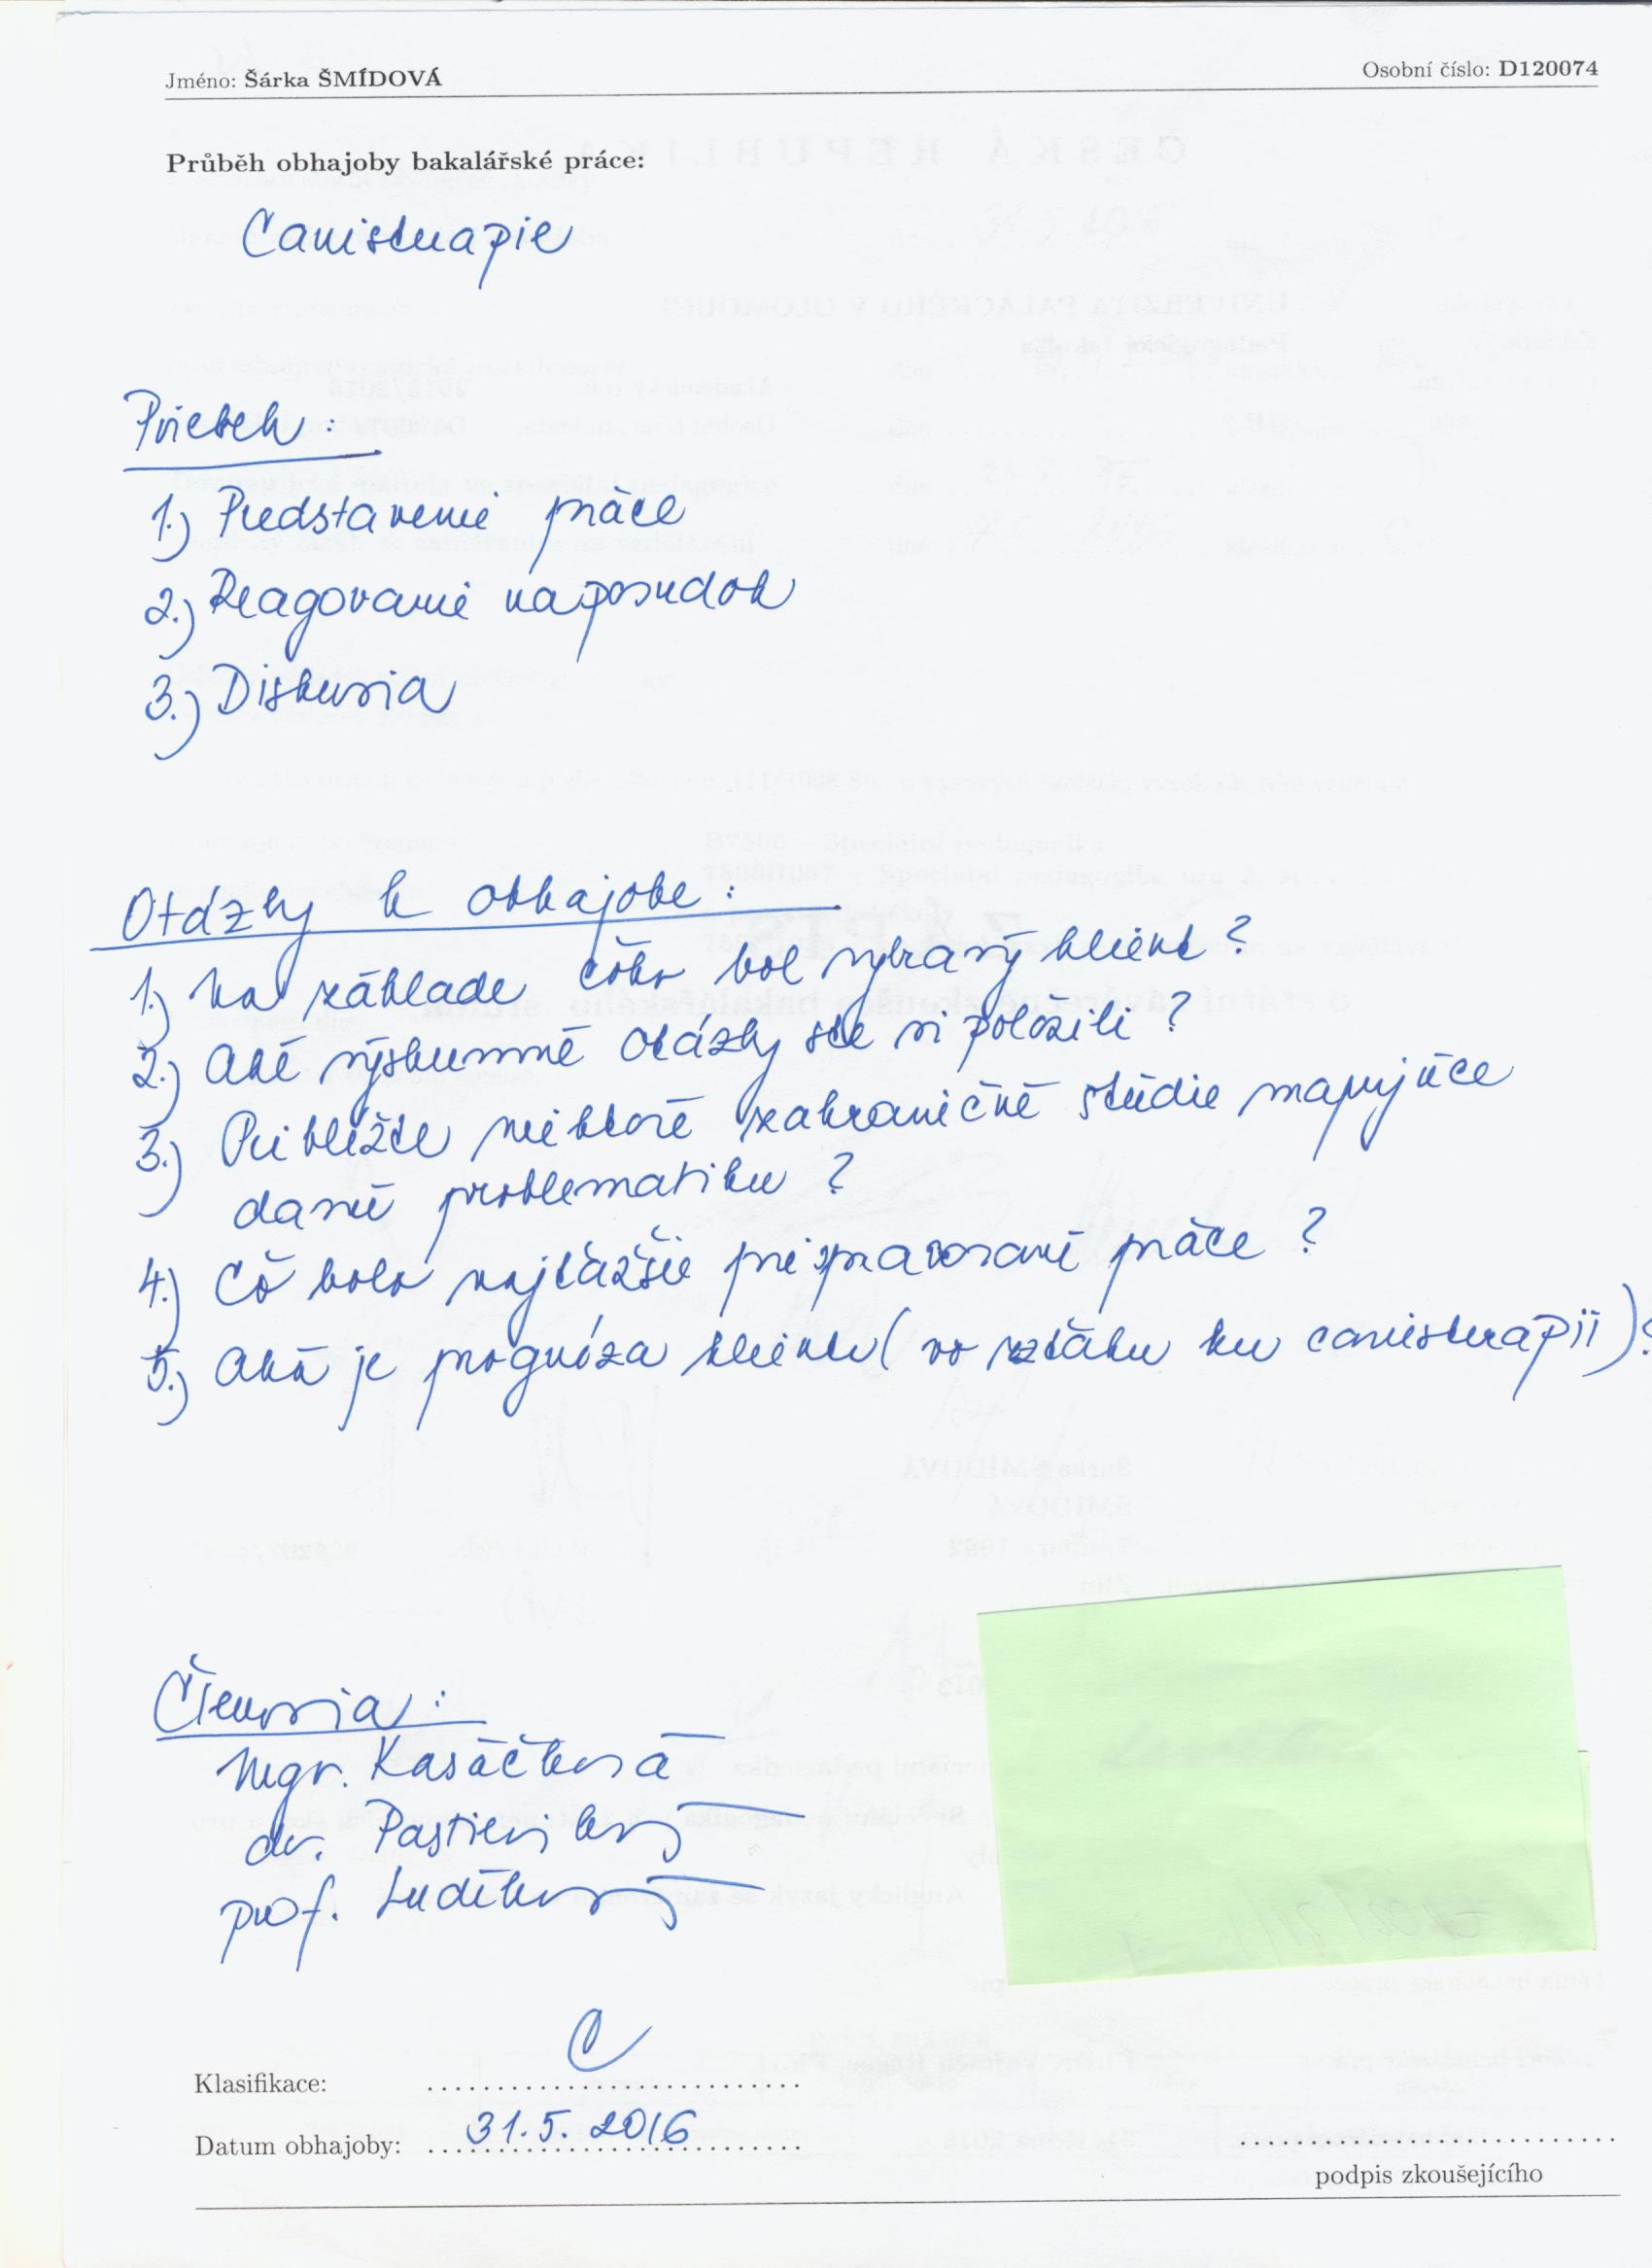 Jméno: Šárka ŠMÍDOVÁ Osobní číslo: D120074
Průběh obhajoby bakalářské práce:
Canisterapie
Priebeh:
1.) Predstavenie práce
2.) Reagovanie na posudok
3.) Diskusia
Otázky k obhajobe:
1.) Na základe čoho bol vybraný klient?
2.) Aké výskumné otázky ste si položili?
3.) Priblížte niektoré zahraničné štúdie mapujúce
danú problematiku?
4.) Čo bolo najťažšie pri spracovaní práce?
5.) Aká je prognóza klienta (vo vzťahu ku canisterapii)?
Členovia:
Mgr. Kasáčková
dr.
prof. Ludíková
Klasifikace: C
Datum obhajoby: 31.5.2016
podpis zkoušejícího